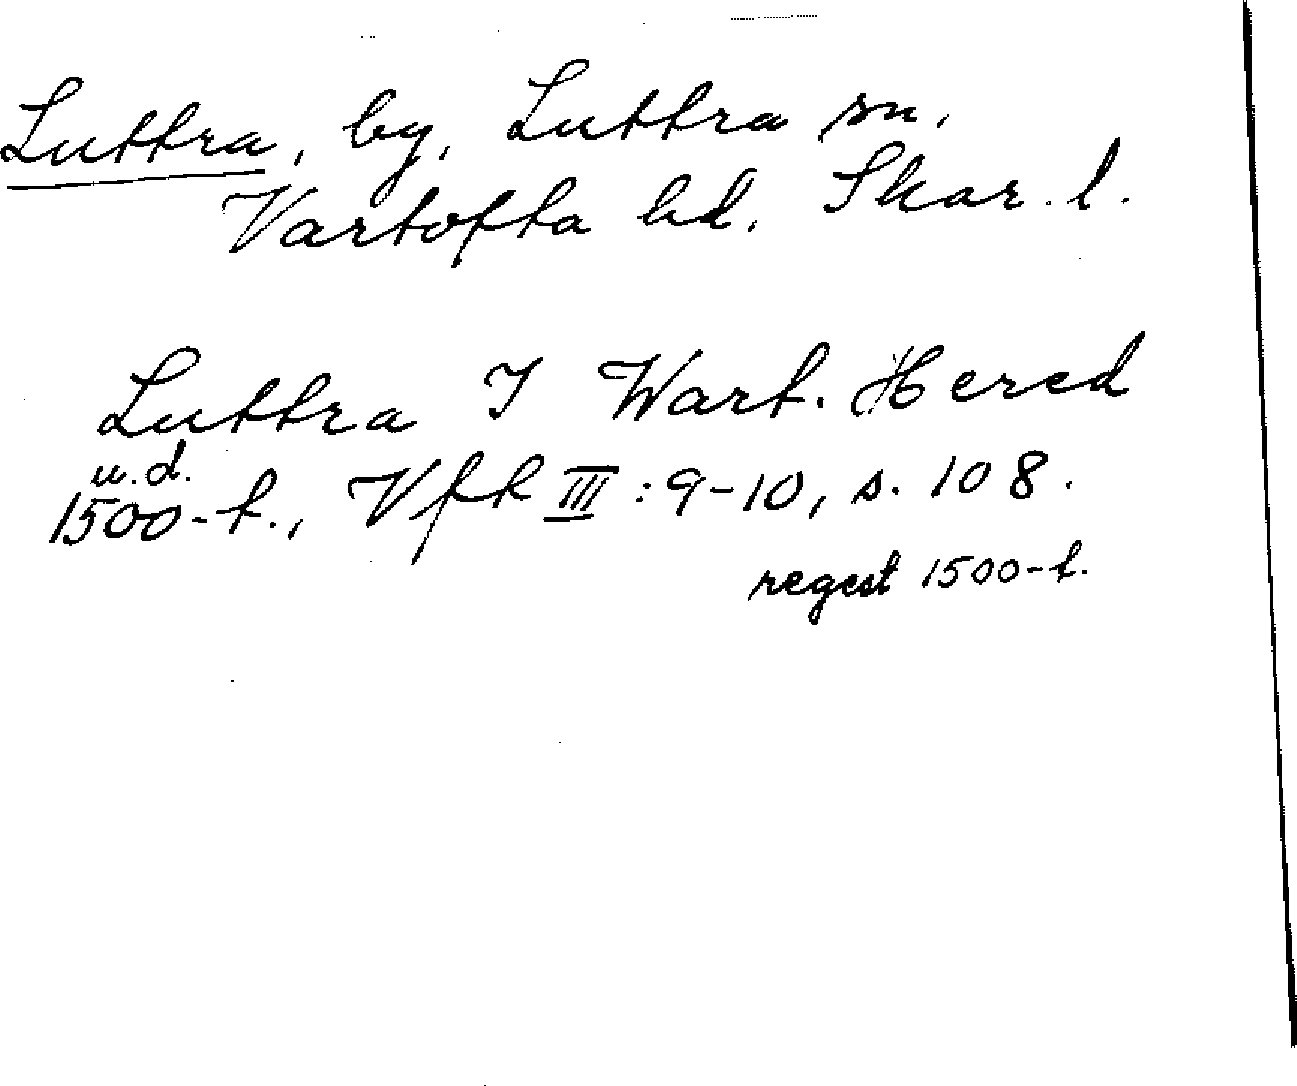 Luttra, by, Luttra sn.
Vartofta hd. Skar. l.
Luttra I Wart. Hered
u.d.
1500-t., Vfk III:9-10, s. 108.
regest 1500-t.